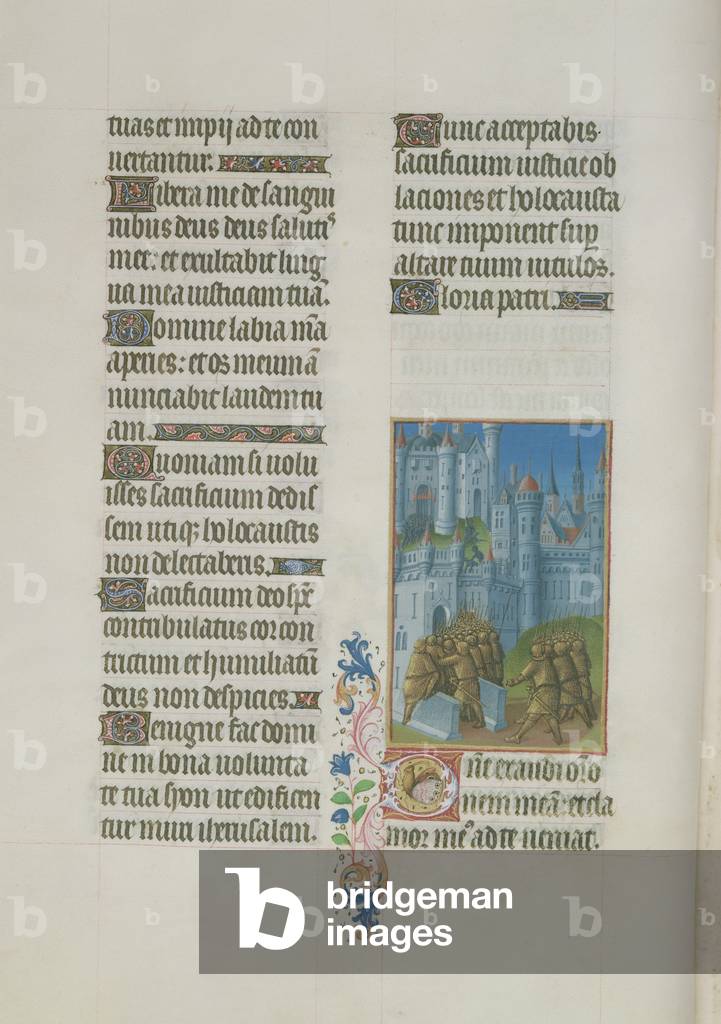 tuas et impij ad te con
uertantur.
Libera me de sangui
nibus deus deus salutis
mee: et exultabit ling
ua mea iusticiam tuā.
Domine labia m̄a
aperies: et os meum ā
nunciabit laudem tu
am.
Quoniam si uolu
isses sacrificium dedis
sem utiqꝫ holocaustis
non delectaberis.
Sacrificium deo sp̄c
contribulatus cor con
trictum et humiliatū
deus non despicies.
Benigne fac domi
ne in bona uolunta
te tua syon ut edificen
tur muri iherusalem.
Tunc acceptabis
sacrificium iusticie ob
laciones et holocausta
tunc imponent sup̄
altare tuum uitulos.
Gloria patri.
Dn̄e exaudi or̄o
nem meā: et cla
mor meꝰ ad te ueniat.
bridgeman
images